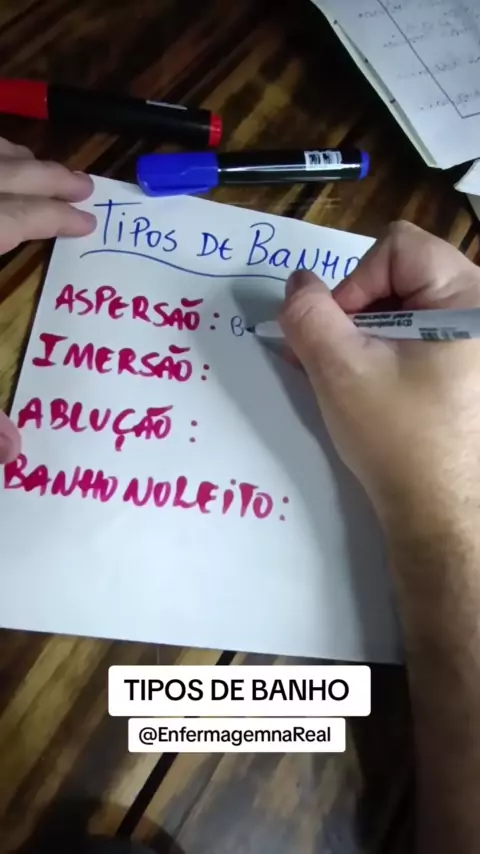 TIPOS DE BANHO
ASPERSÃO: B
IMERSÃO:
ABLUÇÃO:
BANHO NO LEITO:
TIPOS DE BANHO
@EnfermagemnaReal